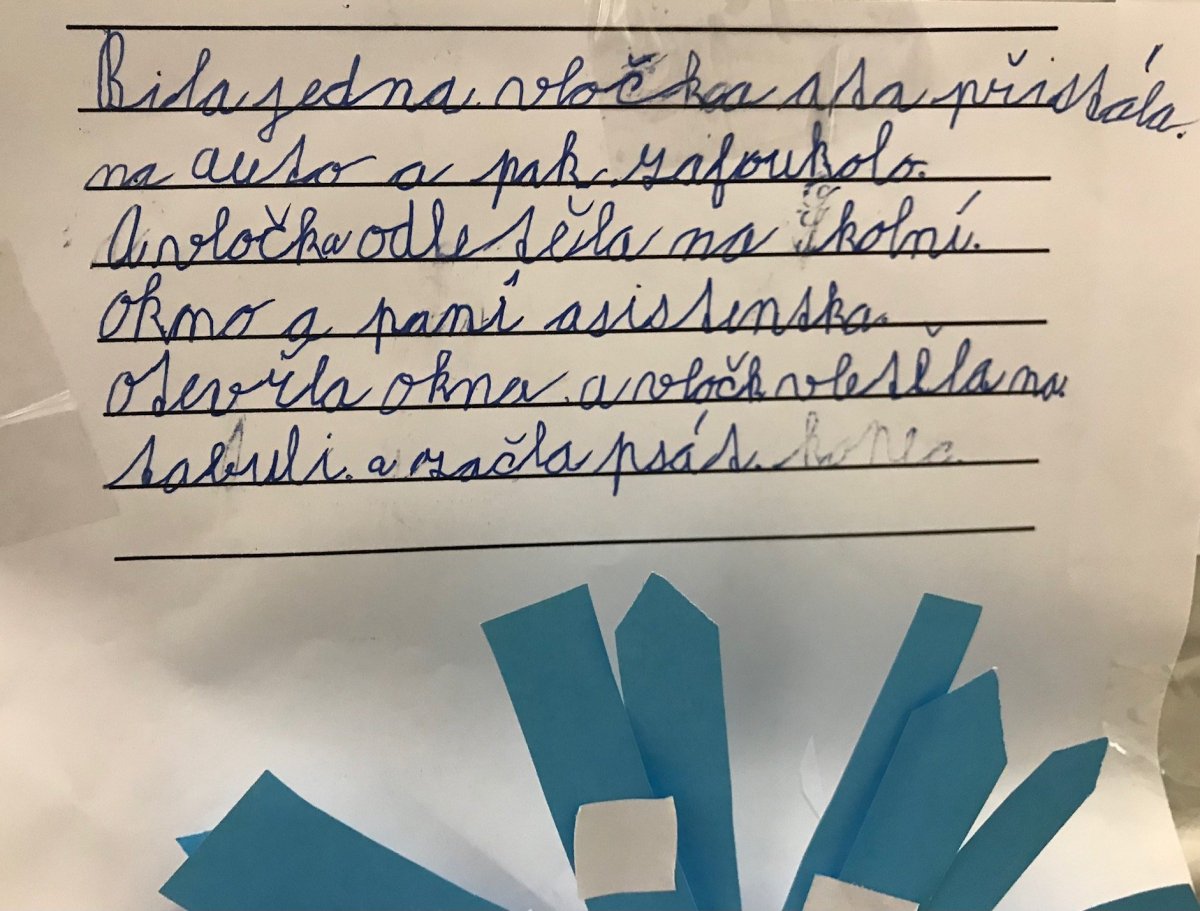 Bila jedna vločka a ta přistála.
na auto a pak zafoukolo.
A vločka odletěla na školní.
okno a paní asistentska.
otevřla okna a vločk vletěla na.
tabuli. a začla psát. konec